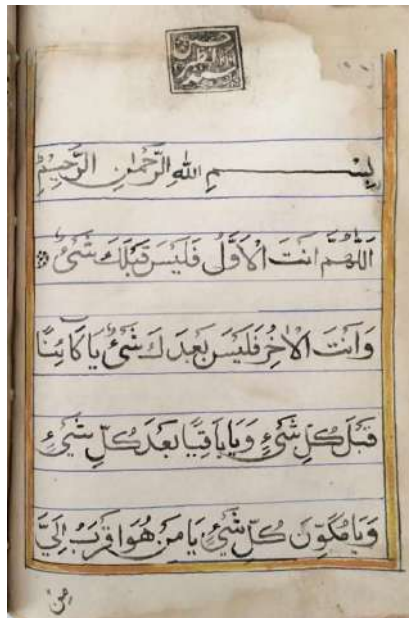 بِسْمِ اللهِ الرَّحْمٰنِ الرَّحِيْمِ
اَللّٰهُمَّ اَنْتَ الْاَوَّلُ فَلَيْسَ قَبْلَكَ شَیْءٌ
وَاَنْتَ الْاٰخِرُ فَلَيْسَ بَعْدَكَ شَیْءٌ يَا كَآئِنًا
قَبْلَ كُلِّ شَیْءٍ وَيَا بَاقِيًا بَعْدَ كُلِّ شَیْءٍ
وَيَا مُكَوِّنَ كُلِّ شَیْءٍ يَا مَنْ هُوَ اَقْرَبُ اِلَیَّ
مِنْ